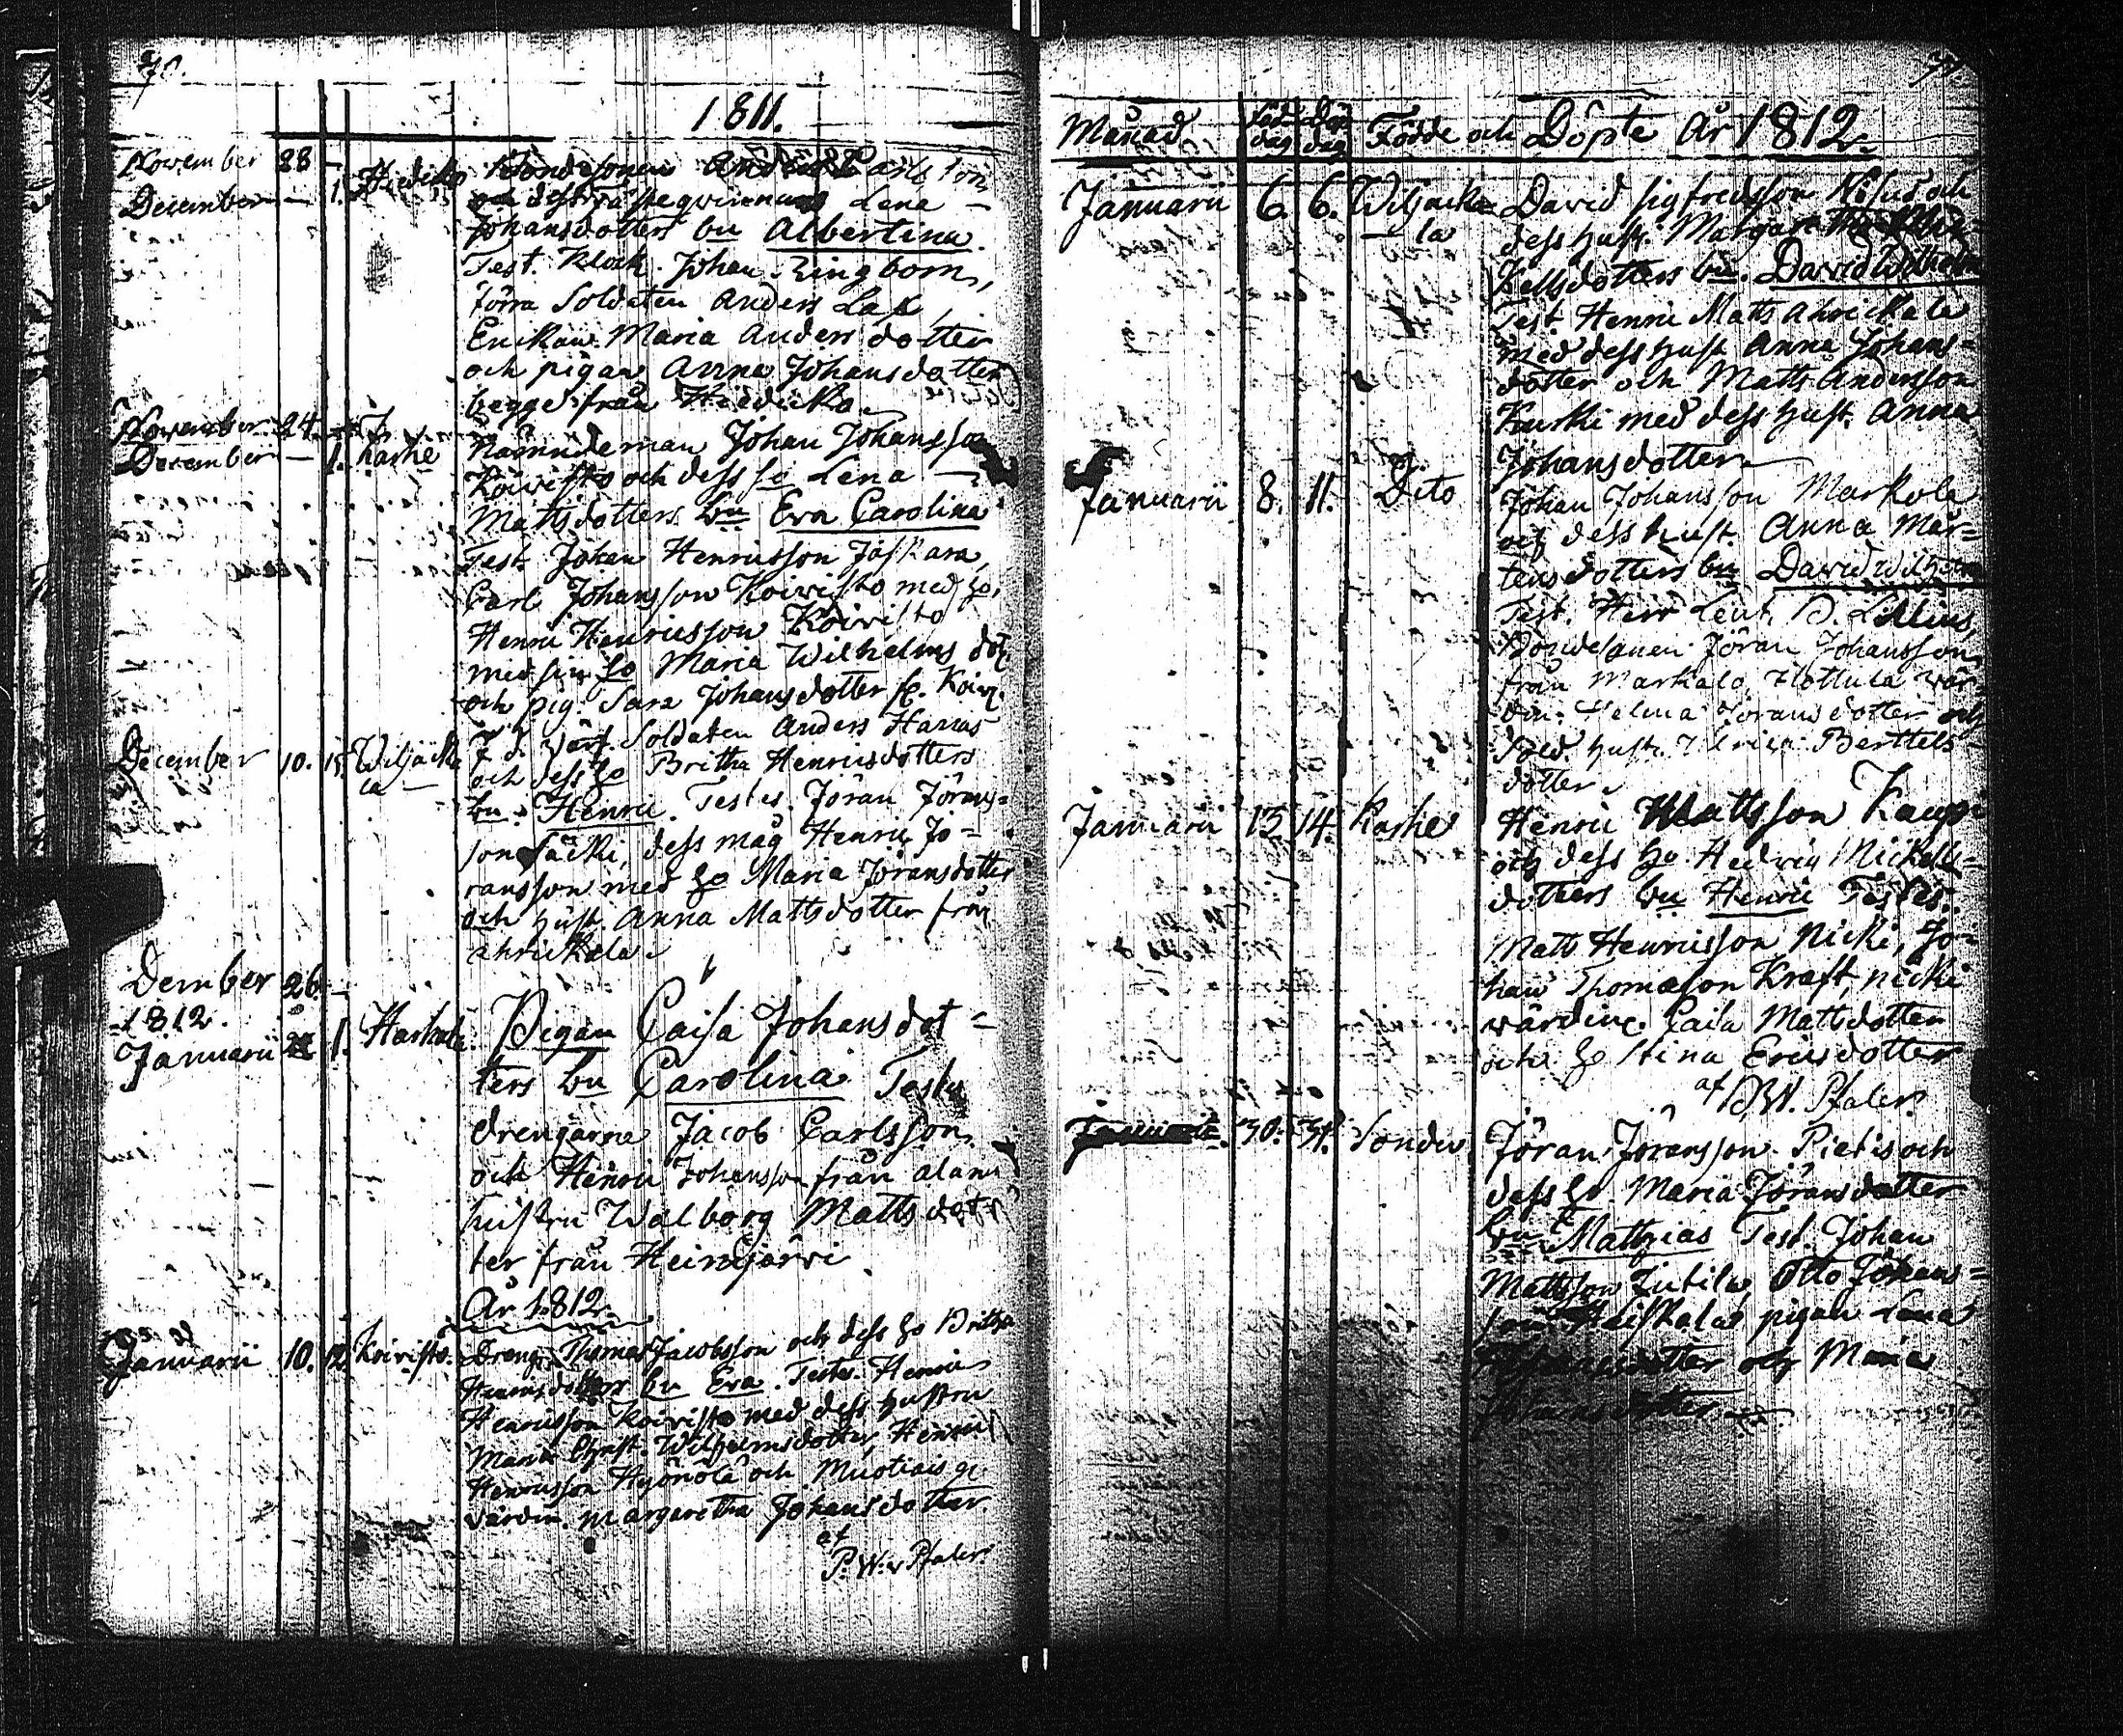 70.
1811.
November 28 —
December — 1. Hiediko Bondesonen Anders Carlsson
och dess Fästeqvinnas Lena —
Johansdotters bn Albertina.
Test. Klock. Johan Ringbom,
förra Soldaten Anders Lax,
Enkan Maria Anders dotter
och pigan Anna Johansdotter
begge från Hiedicko.
November 24. —
December — 1. Karhe Nämndeman Johan Johansson
Koivisto och dess ho Lena —
Mattsdotters bn Eva Carolina
Test. Johan Henricsson Jäskara,
Carl Johansson Koivisto med ho,
Henric Henricsson Koivisto
med sin ho Maria Wilhelms dotr
och pig. Sara Johansdotter fr. Koiv.
December 10. 15. Wiljacka
la — F. d. värf. Soldaten Anders Harras
och dess ho Britha Henricsdotters
bn. Henric. Testes. Jöran Jörans-
son Jäcki, dess måg Henric Jö-
ransson med ho Maria Jöransdotter
och hust. Anna Mattsdotter från
ahrickala.
Dember 26. —
1812.
Januarii 1. Harhala Pigan Caisa Johansdot-
ters bn Carolina Testes
drengarne Jacob Carlsson
och Henric Johansson från alanu
hustru Walborg Mattsdot
ter från Heinijärvi
År 1812.
Januarii 10. 12. Koivisto. Dreng. Thomas Jacobsson och dess ho Britha
Henricsdotter bn Eva. Testes. Henric
Henricsson Koivisto med dess hustru
Maria Christ. Wilhelmsdotter, Henric
Henricsson Hyönölä och Muotiais g.
värdin. Margaretha Johansdotter
af
P. W. v Pfaler.
71.
Månad Föd dag Döp dag Födde och Döpte År 1812.
Januarii 6. 6. Wiljacka-
la David Sigfredsson Nosus och
dess hust. Margar.
Kellsdotters bn. David Wilhelm
Test. Henric Matts Ahrickala
med dess hust. Anna Johans-
dotter och Matts Andersson
Kurki med dess hust. Anna
Johansdotter.
Januarii 8. 11. Dito Johan Johansson Markola
och dess hust. Anna Mår-
tensdotters bn David Wilhelm
Test. Herr Leut. D. Lillius,
Bondesonen Jöran Johansson
från Markala, Hottula vär-
din. Helena Jöransdotter och
Sold. hust. Ulrica Berttels
dotter.
Januarii 13. 14. Karhe Henric Mattsson Kaup
och dess ho. Hedvig Nickells-
dotters bn Henric Testes.
Matts Henricsson Nicki, Jo-
han Thomasson Kraft, Nicki
wärdine. Caisa Mattsdotter
och ho Stina Ericsdotter
af P. W. Pfaler.
Januarii 30. 31. Sondu Jöran Jöransson Pietis och
dess ho. Maria Jöransdotter
bn. Matthias Test. Johan
Mattsson Zutila, Otto Johans-
son Haiskala pigan Lena
och Maria
dotter —